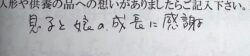 人形や供養の品への想いがありましたらご記入下さい。
息子と娘の成長に感謝